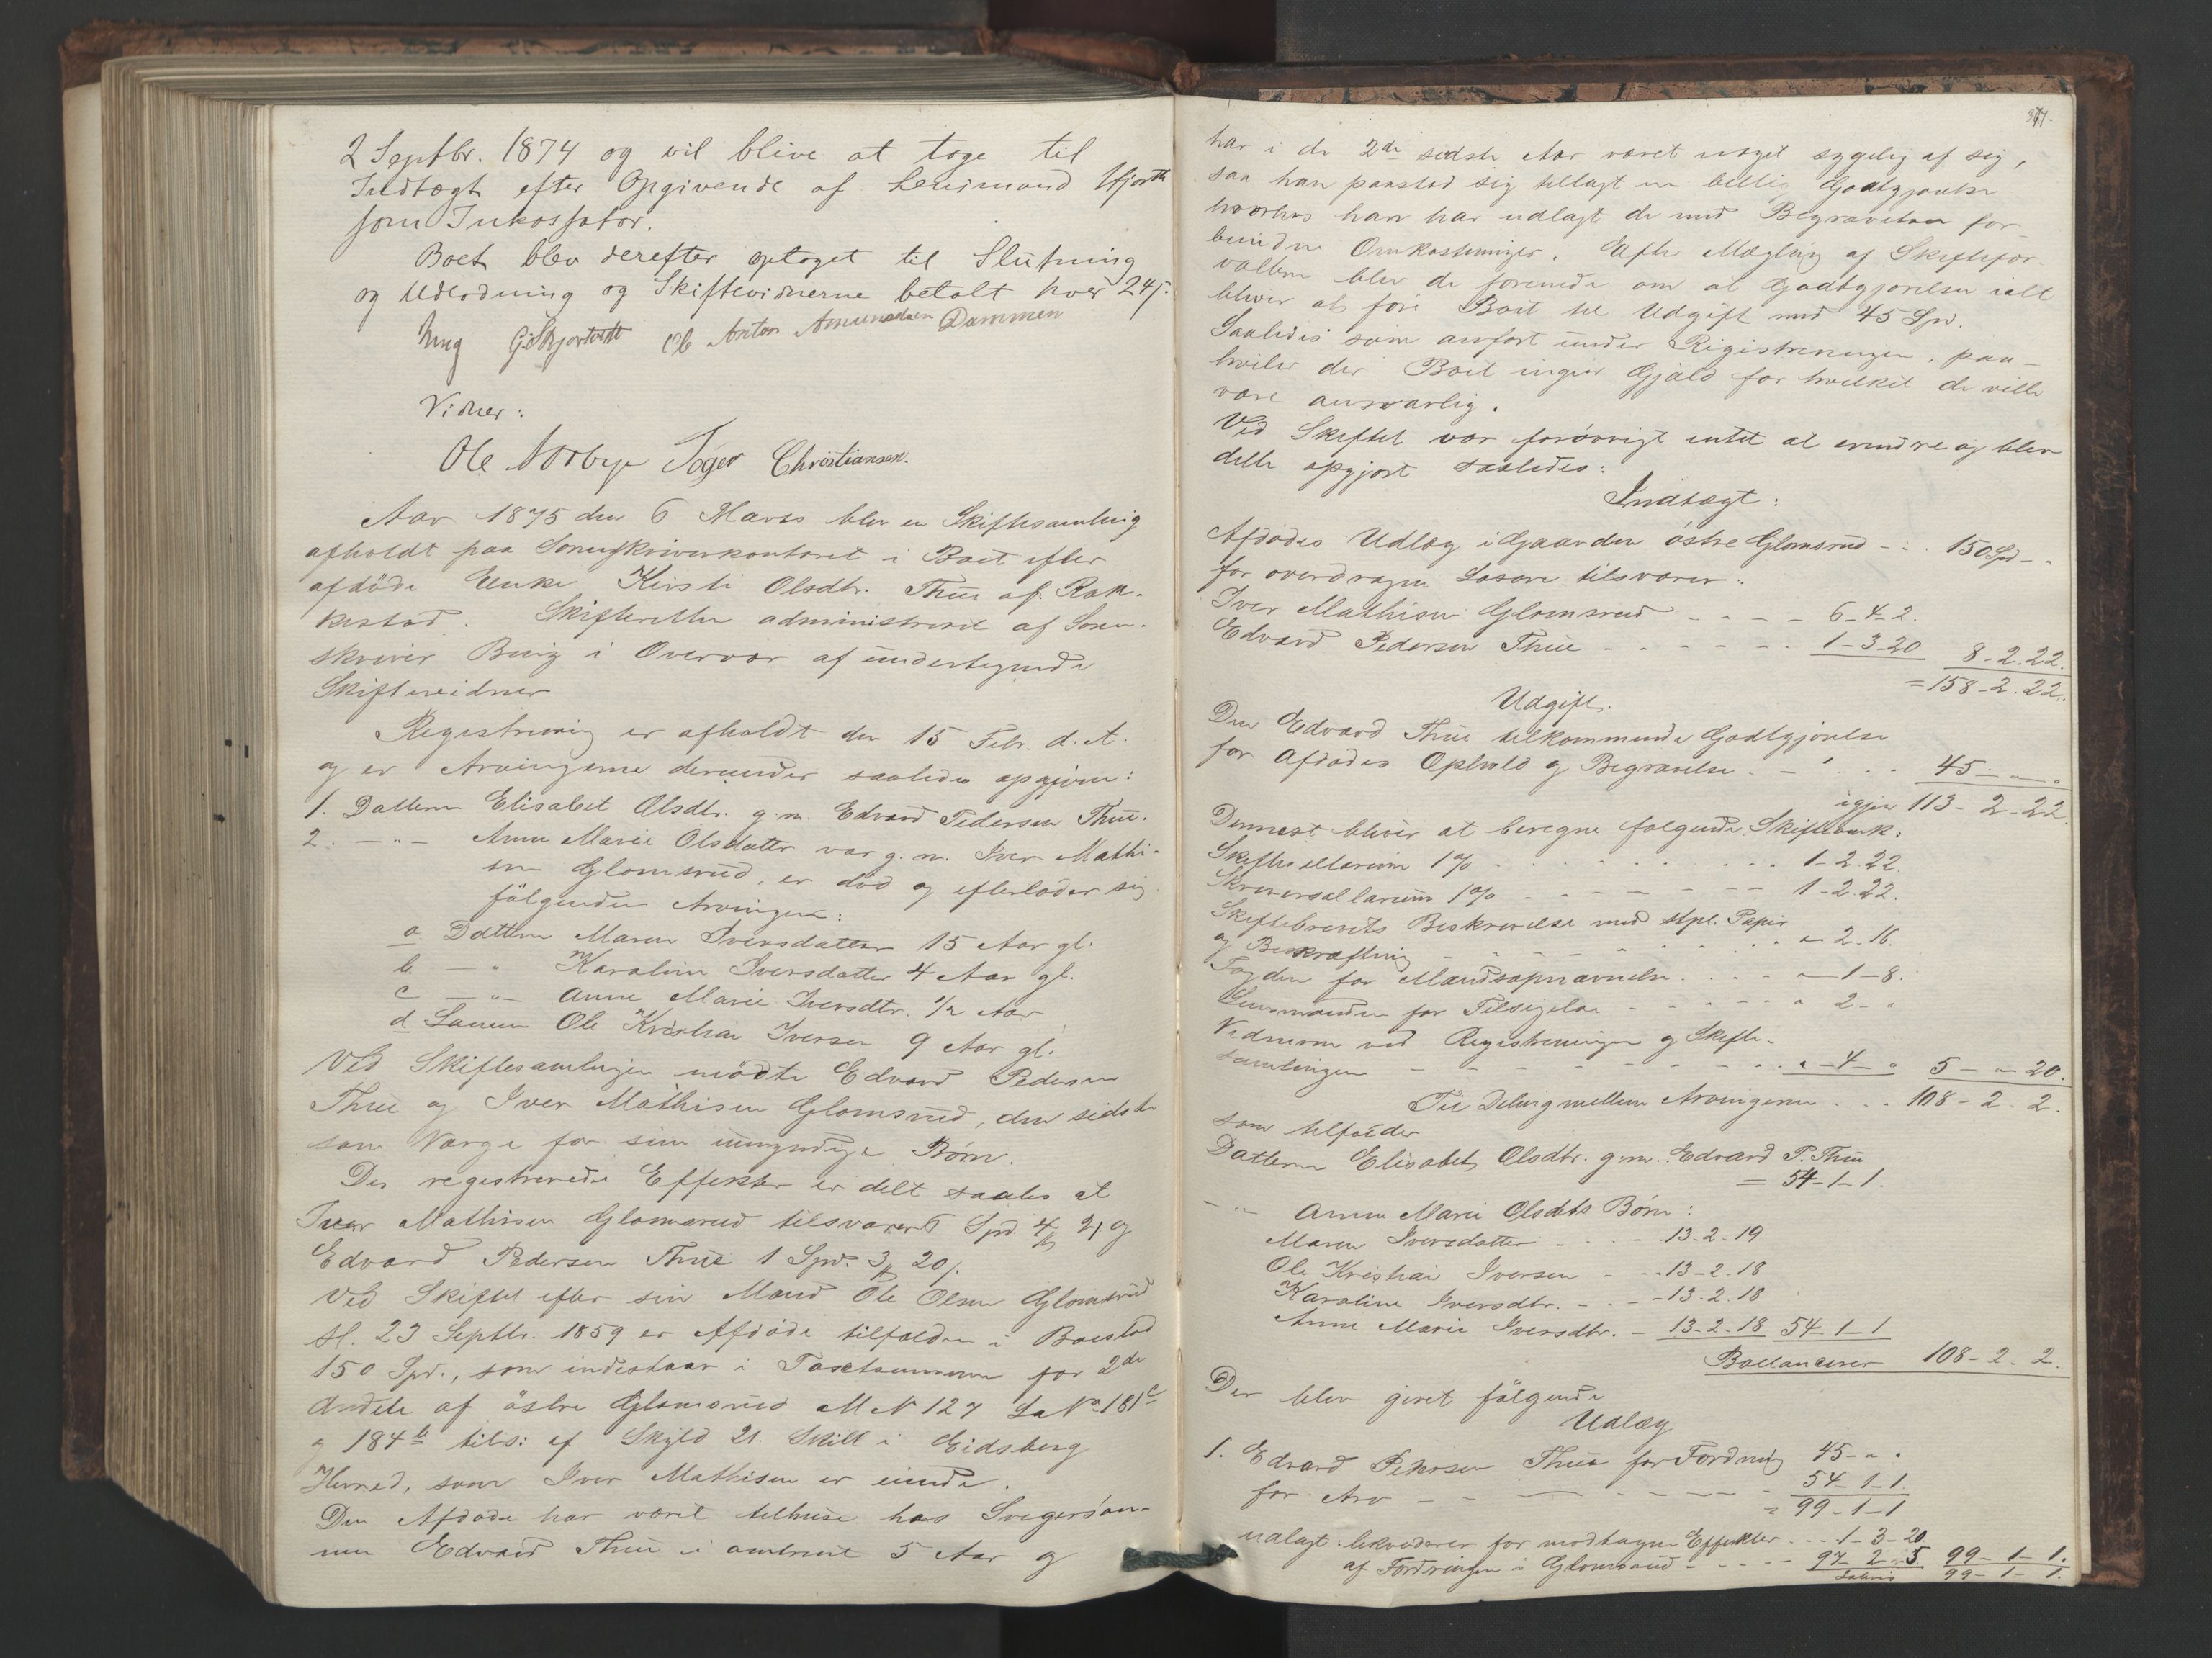 2 Septbr. 1874 og vil blive at tage til
Indtægt efter Opgivende af Lensmand Hjorth
som Inkassator.
Boet blev derefter optaget til Slutning
og Udlodning og Skiftevidnerne betalt hver 24 s.
Ole Anton Amundsen Dammen
Vidner:
Ole Norbye Toger Christiansen.
Aar 1875 den 6 Marts blev en Skiftesamling
afholdt paa Sorenskriverkontoret i Boet efter
afdöde Enke Kirsti Olsdtr. Thue af Rak-
kestad. Skifteretten administreret af Soren-
skriver Bing i Overvær af undertegnede
Skiftevidner
Registrering er afholdt den 15 Febr. d. A.
og er Arvingerne derunder saaledes opgivne:
1. Datteren Elisabet Olsdtr. g. m. Edvard Pedersen Thue.
2. —"— Anne Marie Olsdatter var g. m. Iver Mathi-
sen Glomsrud, er död og efterlader sig
fölgende Arvinger:
a Datteren Maren Iversdatter 15 Aar gl.
b — " Karoline Iversdatter 4 Aar gl.
c — " — Anne Marie Iversdtr. 1/2 Aar
d Sönnen Ole Kristian Iversen 9 Aar gl.
Ved Skiftesamlingen mödte Edvard Pedersen
Thue og Iver Mathisen Glomsrud, den sidste
som Værge for sine umyndige Börn.
De registrerede Effekter er delt saales at
Iver Mathisen Glomsrud tilsvarer 6 Spd. 4 2, og
Edvard Pedersen Thue 1 Spd. 3 20 s.
Ved Skiftet efter sin Mand Ole Olsen Glomsrud
sl. 23 Septbr. 1859 er Afdöde tilfalden i Boeslod
150 Spd., som indestaar i Taxtsummen for 2de
Andele af östre Glomsrud M N 127 La No 181c
og 184b tils: af Skyld 21. Skill i Eidsberg
Herred, som Iver Mathisen er eiende.
Den Afdöde har været tilhuse hos Svigersön-
nen Edvard Thue i omtrent 5 Aar og
har i de 2de sidste Aar været noget sygelig af sig,
saa han paastod sig tillagt en billig Godtgjörelse
hvorhos han har udlagt de med Begravelsen for-
bundne Omkostninger. Efter Mægling af Skiftefor-
valteren blev de forenede om at Godtgjörelsen ialt
bliver at före Boet til Udgift med 45 Spd.
Saaledes som anfört under Registreringen, paa-
hviler der Boet ingen Gjæld for hvilket de ville
være ansvarlig.
Ved Skiftet var forövrigt intet at erindre og blev
dette opgjort saaledes:
Indtægt:
Afdödes Udlæg i Gaarden östre Glomsrud - . . 150 Spd - "
for overdragen Lösöre tilsvarer:
Iver Mathisen Glomsrud - - - - 6-4-2.
Edvard Pedersen Thue - - - - - - 1-3-20 8-2.22.
= 158-2.22.
Udgift.
Den Edvard Thue tilkommende Godtgjörelse
for Afdödes Ophold og Begravelse - - . . . 45 - " - "
igjen 113-2-22.
Dernæst bliver at beregne fölgende Skifteomk:
Skiftesallarium 1% . . . . . . . 1-2.22.
Skriversallarium 1% - - - - - - 1-2.22.
Skiftebrevets Beskrivelse med stpl. Papir
og Bekræftning - . . . . . . " 2-16.
Fogden for Mandsopnævnelse . . . " - 1-8.
Lensmanden for Tilsigelse - - - - - " 2 - "
Vidnerne ved Registreringen og Skifte-
samlingen - - - - - - - . . " - 4 - " 5 - " - 20.
Til Deling mellem Arvingerne . . . 108-2.2.
som tilfalder
Datteren Elisabet Olsdtr. g. m. Edvard P. Thue
= 54-1-1.
- " - Anne Marie Olsdtrs Börn:
Maren Iversdatter - - - - . 13-2-19
Ole Kristian Iversen - - . 13-2-18
Karoline Iversdtr. - - - - 13-2.18
Anne Marie Iversdtr. - 13-2-18 54-1-1
Ballancerer 108-2.2.
Der blev givet fölgende
Udlæg
1. Edvard Pedersen Thue for Fordring 45 - " "
for Arv - - - - - - - 54-1-1.
= 99-1-1
udlagt: likviderer for modtagne Effekter . . . 1-3-20
af Fordringen i Glomsrud - - - - - 97 2 5 99-1-1.
99-1-1.